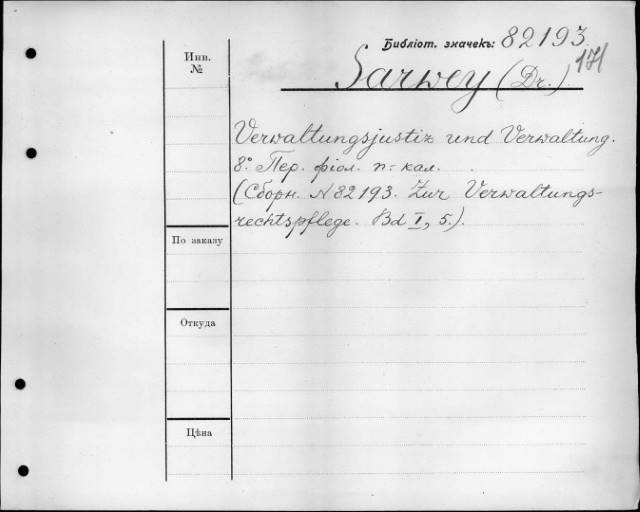 Библіот. значекъ: 82193.
171
Инв.
№
Sarwey (Dr.)
Verwaltungsjustiz und Verwaltung.
8° Пер. фіол. п.- кал.
(Сборн. N 82193. Zur Verwaltungs-
rechtspflege. Bd I, 5.).
По заказу
Откуда
Цѣна